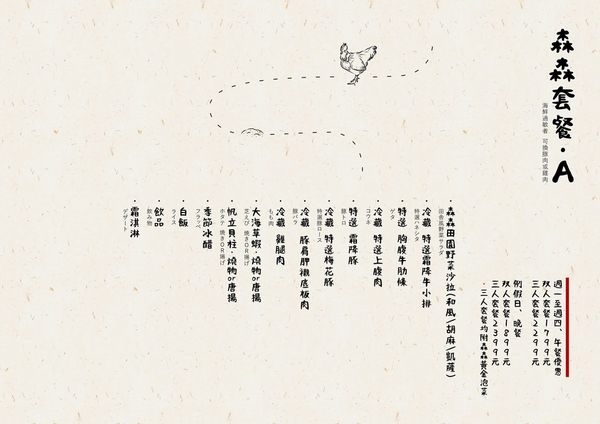 森森套餐·A
海鮮過敏者 可換豚肉或雞肉
週一至週四、午餐優惠
双人套餐1799元
三人套餐2299元
例假日、晚餐
双人套餐1899元
三人套餐2399元
·三人套餐均附森森黃金泡菜
·森森田園野菜沙拉(和風/胡麻/凱薩)
田舎風野菜サラダ
·冷藏 特選霜降牛小排
特選ハネシタ
·特選 胸腹牛肋條
ゲタ
·冷藏 特選上腹肉
コウネ
·特選 霜降豚
豚トロ
·冷藏 特選梅花豚
特選豚ロース
·冷藏 豚肩胛襯底板肉
豚バラ
·冷藏 雞腿肉
もも肉
·大海草蝦·燒物or唐揚
芝えび 焼きOR揚げ
·帆立貝柱·燒物or唐揚
ホタテ 焼きOR揚げ
·季節冰醋
フラッペ
·白飯
ライス
·飲品
飲み物
·霜淇淋
デザート